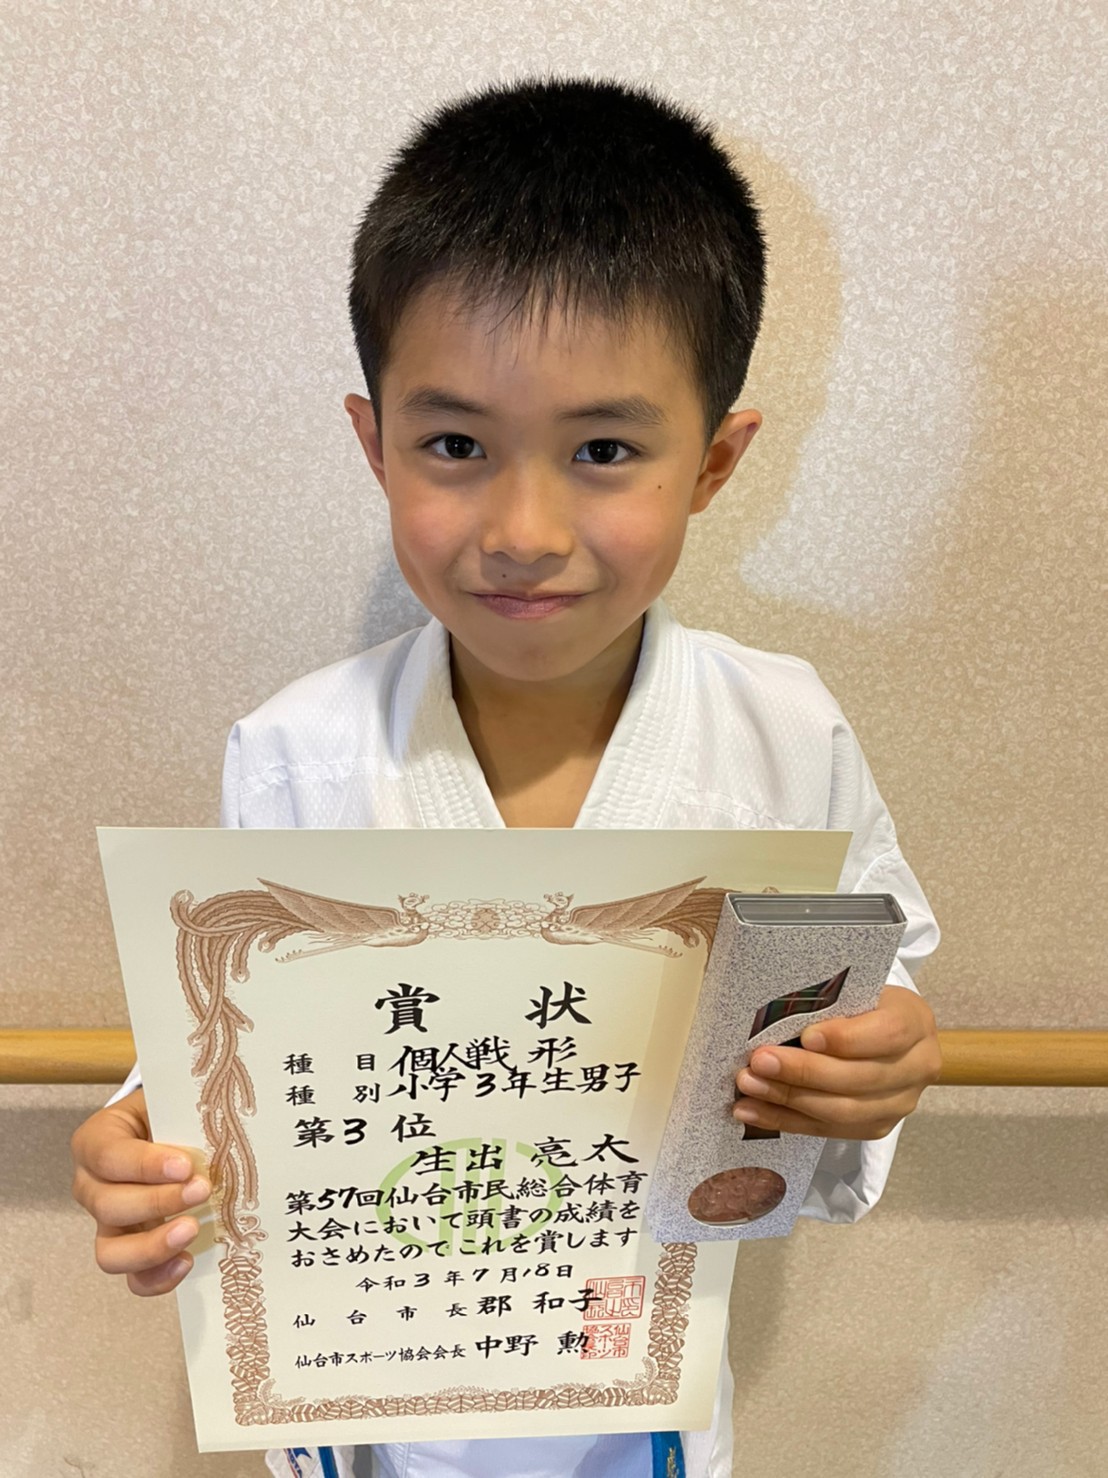 賞状
種目 個人戦 形
種別 小学3年生男子
第3位
生出 亮太
第57回仙台市民総合体育
大会において頭書の成績を
おさめたのでこれを賞します
令和3年7月18日
仙台市長 郡 和子
仙台市スポーツ協会会長 中野 勲